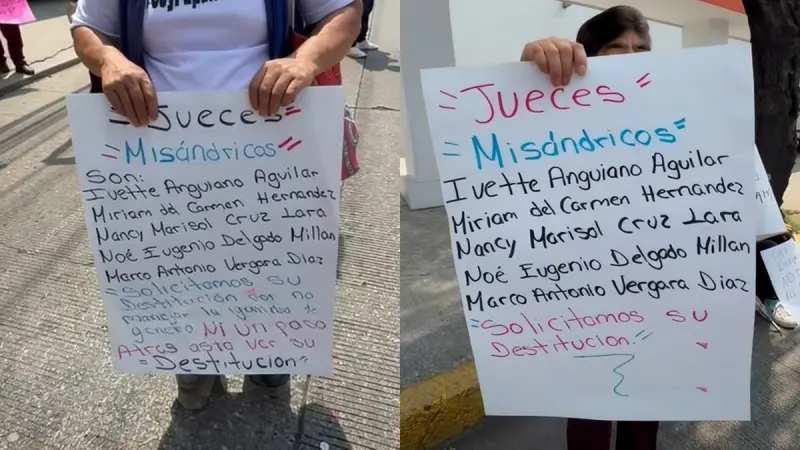 = Jueces =
= Misándricos =
Son:
Ivette Anguiano Aguilar
Miriam del Carmen Hernandez
Nancy Marisol Cruz Lara
Noé Eugenio Delgado Millan
Marco Antonio Vergara Diaz
=Solicitamos Su
Destitución Por no
manejar la igualdad de
genero Ni un paso
Atras asta ver su
=Destitucion=
= Jueces =
= Misándricos=
Ivette Anguiano Aguilar
Miriam del Carmen Hernandez
Nancy Marisol Cruz Lara
Noé Eugenio Delgado Millan
Marco Antonio Vergara Diaz
=Solicitamos su
Destitución=